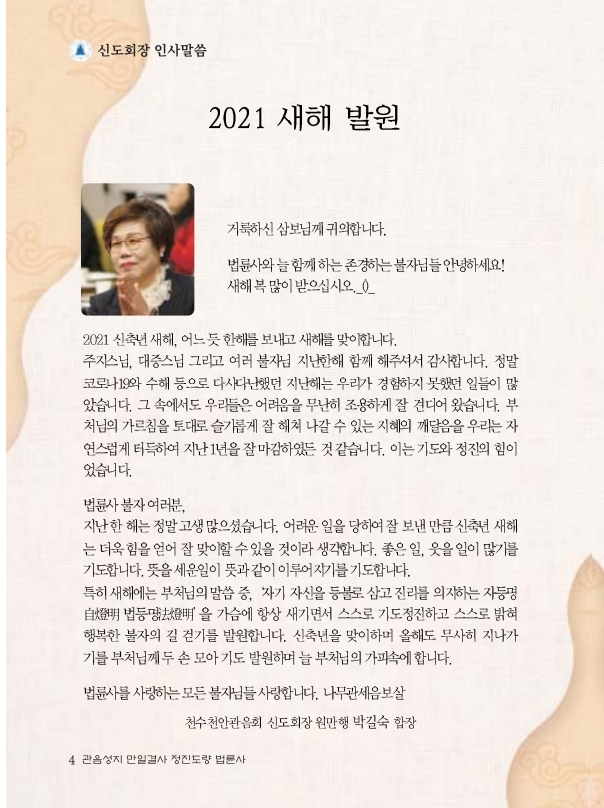 신도회장 인사말씀
2021 새해 발원
거룩하신 삼보님께 귀의합니다.
법륜사와 늘 함께 하는 존경하는 불자님들 안녕하세요!
새해 복 많이 받으십시오._()_
2021 신축년 새해, 어느 듯 한해를 보내고 새해를 맞이합니다.
주지스님, 대중스님 그리고 여러 불자님 지난한해 함께 해주셔서 감사합니다. 정말
코로나19와 수해 등으로 다사다난했던 지난해는 우리가 경험하지 못했던 일들이 많
았습니다. 그 속에서도 우리들은 어려움을 무난히 조용하게 잘 견디어 왔습니다. 부
처님의 가르침을 토대로 슬기롭게 잘 해쳐 나갈 수 있는 지혜의 깨달음을 우리는 자
연스럽게 터득하여 지난 1년을 잘 마감하였든 것 같습니다. 이는 기도와 정진의 힘이
었습니다.
법륜사 불자 여러분,
지난 한 해는 정말 고생 많으셨습니다. 어려운 일을 당하여 잘 보낸 만큼 신축년 새해
는 더욱 힘을 얻어 잘 맞이할 수 있을 것이라 생각합니다. 좋은 일, 웃을 일이 많기를
기도합니다. 뜻을 세운일이 뜻과 같이 이루어지기를 기도합니다.
특히 새해에는 부처님의 말씀 중, '자기 자신을 등불로 삼고 진리를 의지하는 자등명
自燈明 법등명法燈明' 을 가슴에 항상 새기면서 스스로 기도정진하고 스스로 밝혀
행복한 불자의 길 걷기를 발원합니다. 신축년을 맞이하며 올해도 무사히 지나가
기를 부처님께 두 손 모아 기도 발원하며 늘 부처님의 가피속에 합니다.
법륜사를 사랑하는 모든 불자님들 사랑합니다. 나무관세음보살
천수천안관음회 신도회장 원만행 박길숙 합장
4 관음성지 만일결사 정진도량 법륜사